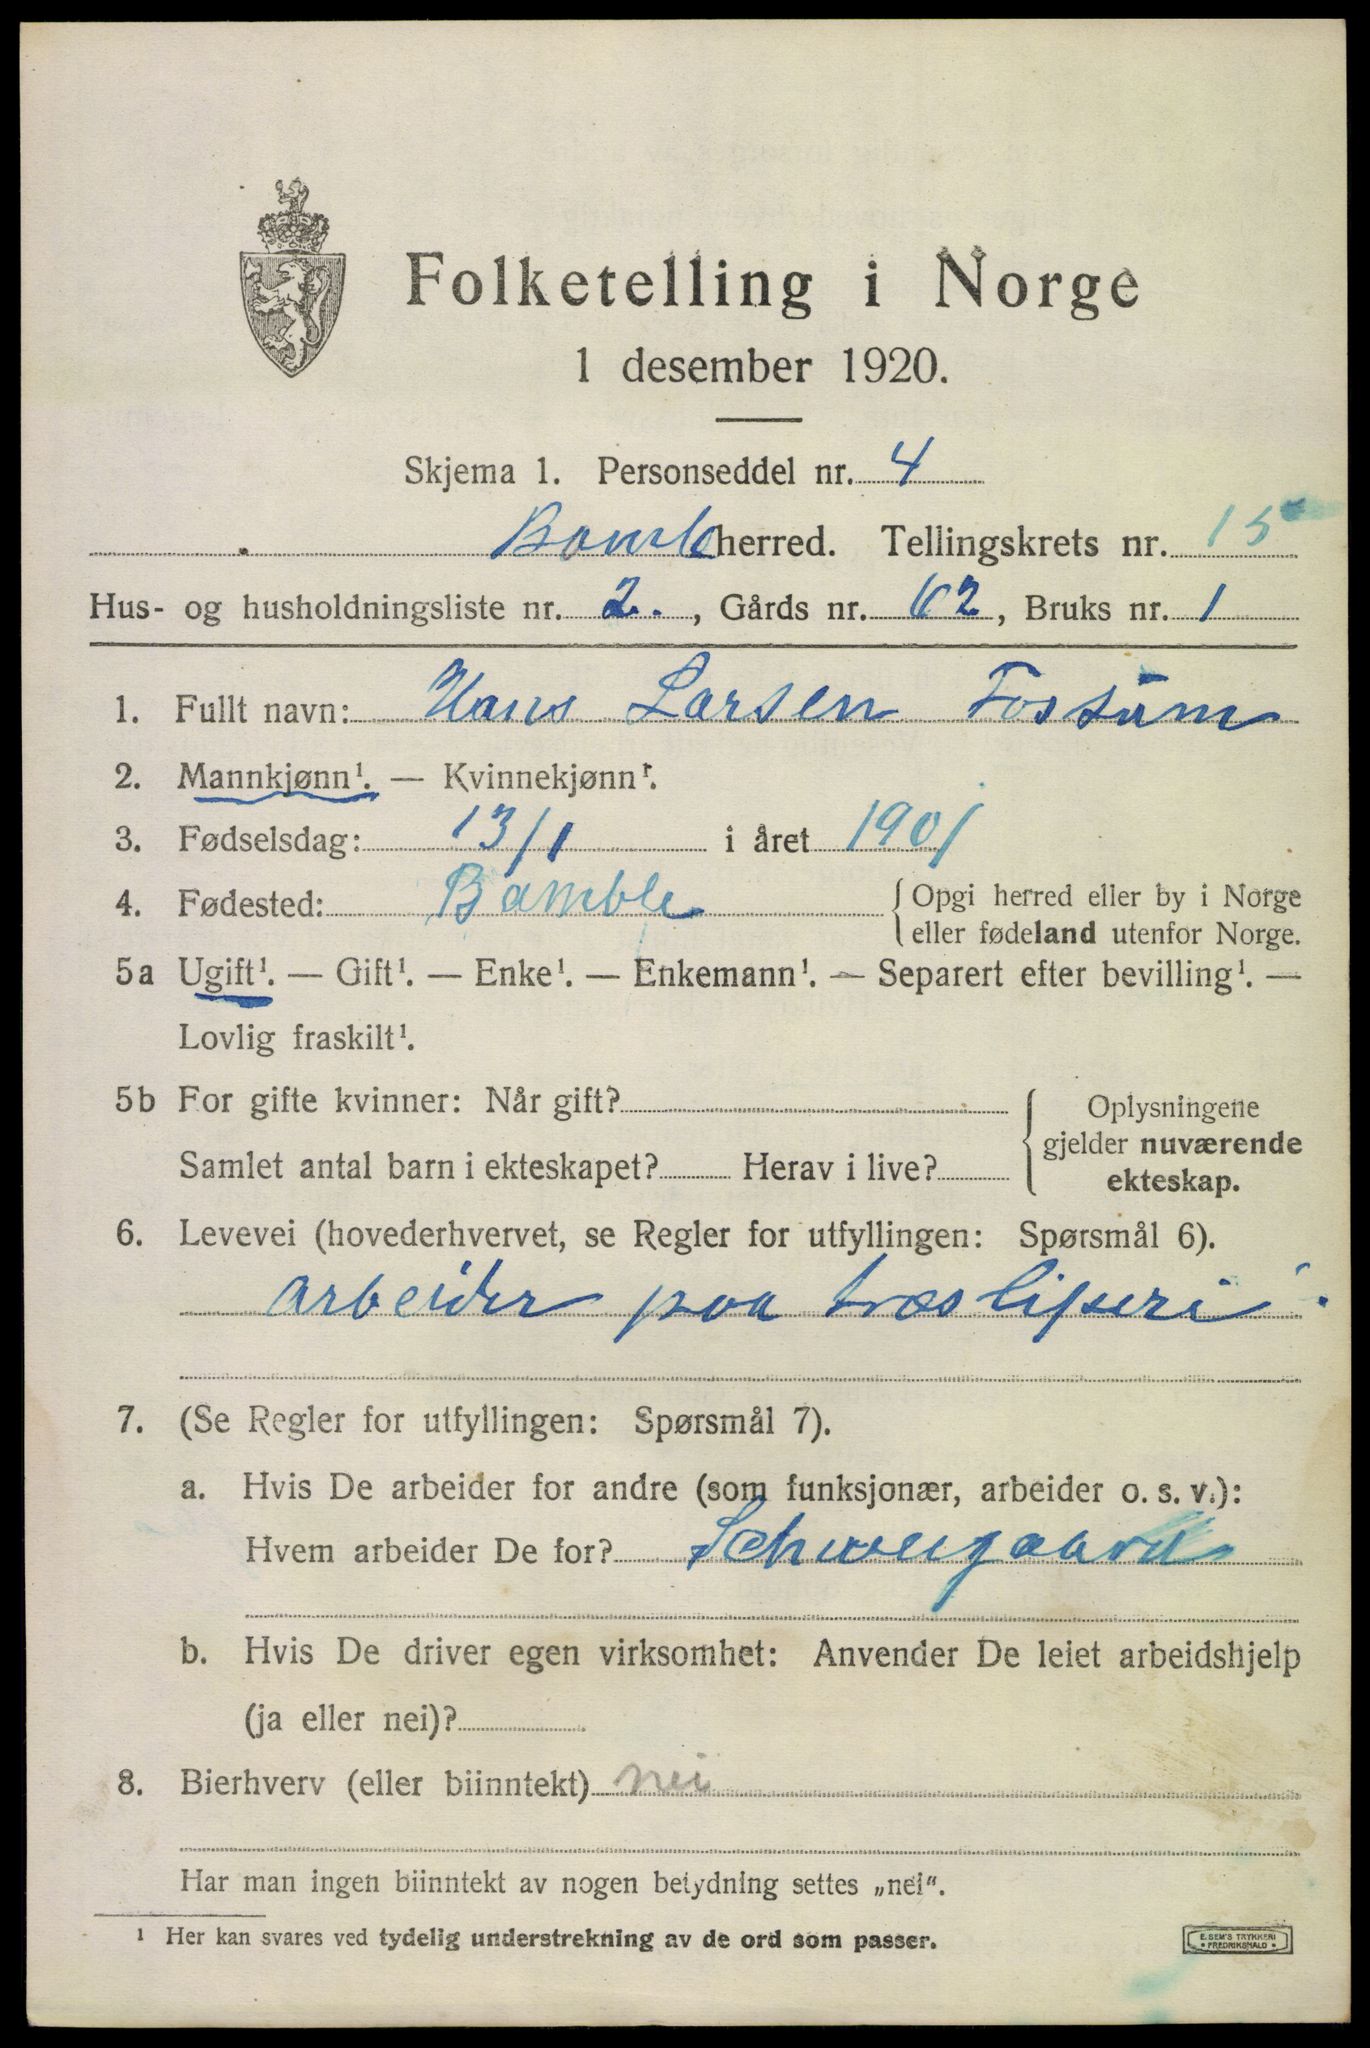 Folketelling i Norge
1 desember 1920.
Skjema 1. Personseddel nr. 4
Bamble herred. Tellingskrets nr. 15
Hus- og husholdningsliste nr. 2. , Gårds nr. 62, Bruks nr. 1
1. Fullt navn: Hans Larsen Fossum
2. Mannkjønn¹. — Kvinnekjønn¹.
3. Fødselsdag: 13/1 i året 1901
4. Fødested: Bamble { Opgi herred eller by i Norge
eller fødeland utenfor Norge.
5a Ugift¹. — Gift¹. — Enke¹. — Enkemann¹. — Separert efter bevilling¹. —
Lovlig fraskilt¹.
5b For gifte kvinner: Når gift? { Oplysningene
gjelder nuværende
Samlet antal barn i ekteskapet? Herav i live? ekteskap.
6. Levevei (hovederhvervet, se Regler for utfyllingen: Spørsmål 6).
arbeider paa træsliperi.
7. (Se Regler for utfyllingen: Spørsmål 7).
a. Hvis De arbeider for andre (som funksjonær, arbeider o. s. v.):
Hvem arbeider De for? Schweigaard
b. Hvis De driver egen virksomhet: Anvender De leiet arbeidshjelp
(ja eller nei)?
8. Bierhverv (eller biinntekt) nei
Har man ingen biinntekt av nogen betydning settes „nei“.
¹ Her kan svares ved tydelig understrekning av de ord som passer.
E. SEM'S TRYKKERI
• FREDRIKSHALD •